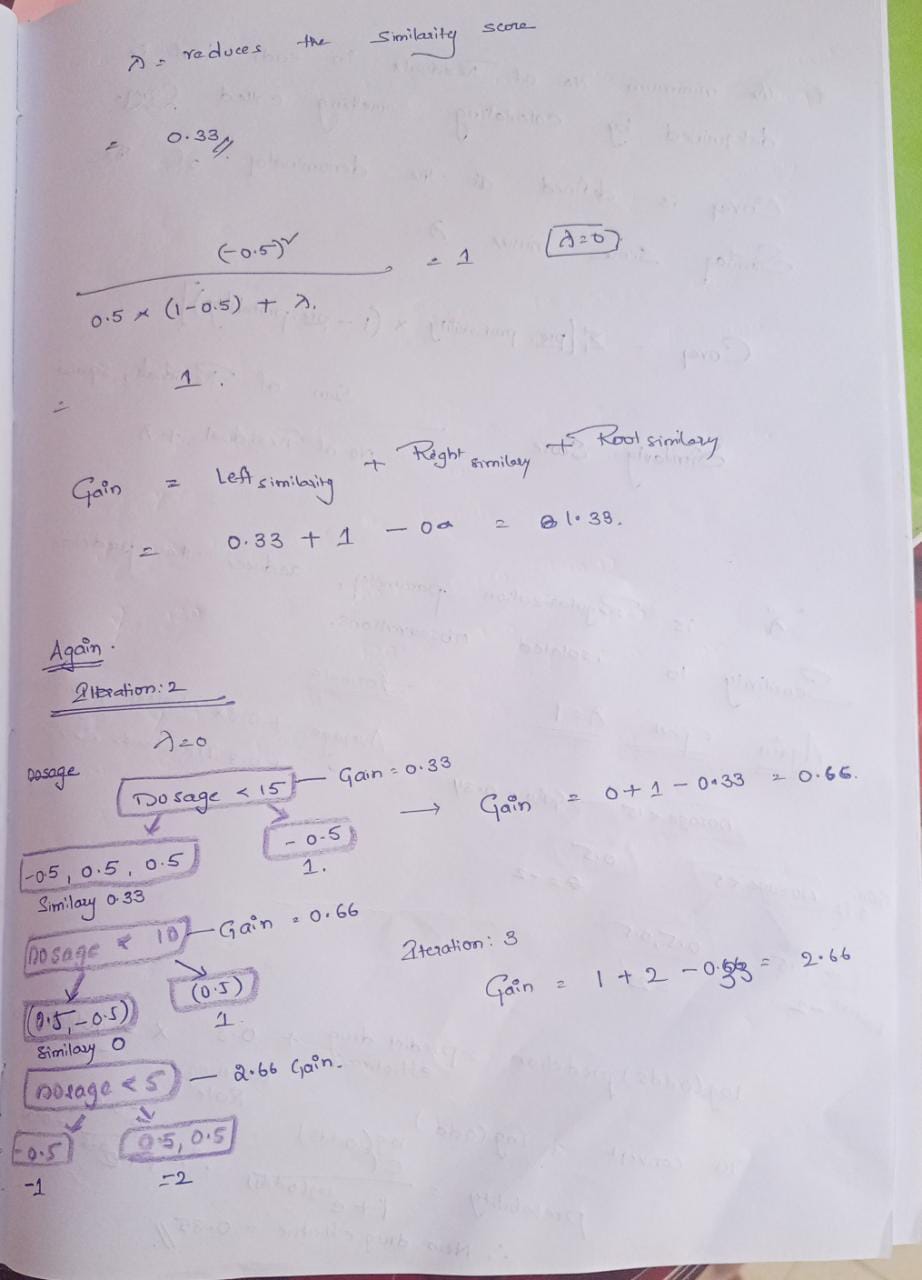 λ = reduces the Similarity score
= 0.33//
(-0.5)² = 1 [λ=0]
0.5 × (1-0.5) + λ.
= 1.
Gain = Left similarity + Right similary + Root similary
= 0.33 + 1 - 0 = 1.33.
Again.
Iteration: 2
λ=0
Dosage
Dosage < 15 — Gain = 0.33 → Gain = 0+1-0.33 = 0.66.
-0.5, 0.5, 0.5 -0.5
Similary 0.33 1.
Dosage < 10 — Gain = 0.66
Iteration: 3
(0.5, -0.5) (0.5) Gain = 1+2-0.33 = 2.66
Similary 0 1
Dosage < 5 — 2.66 Gain.
-0.5 0.5, 0.5
=1 =2